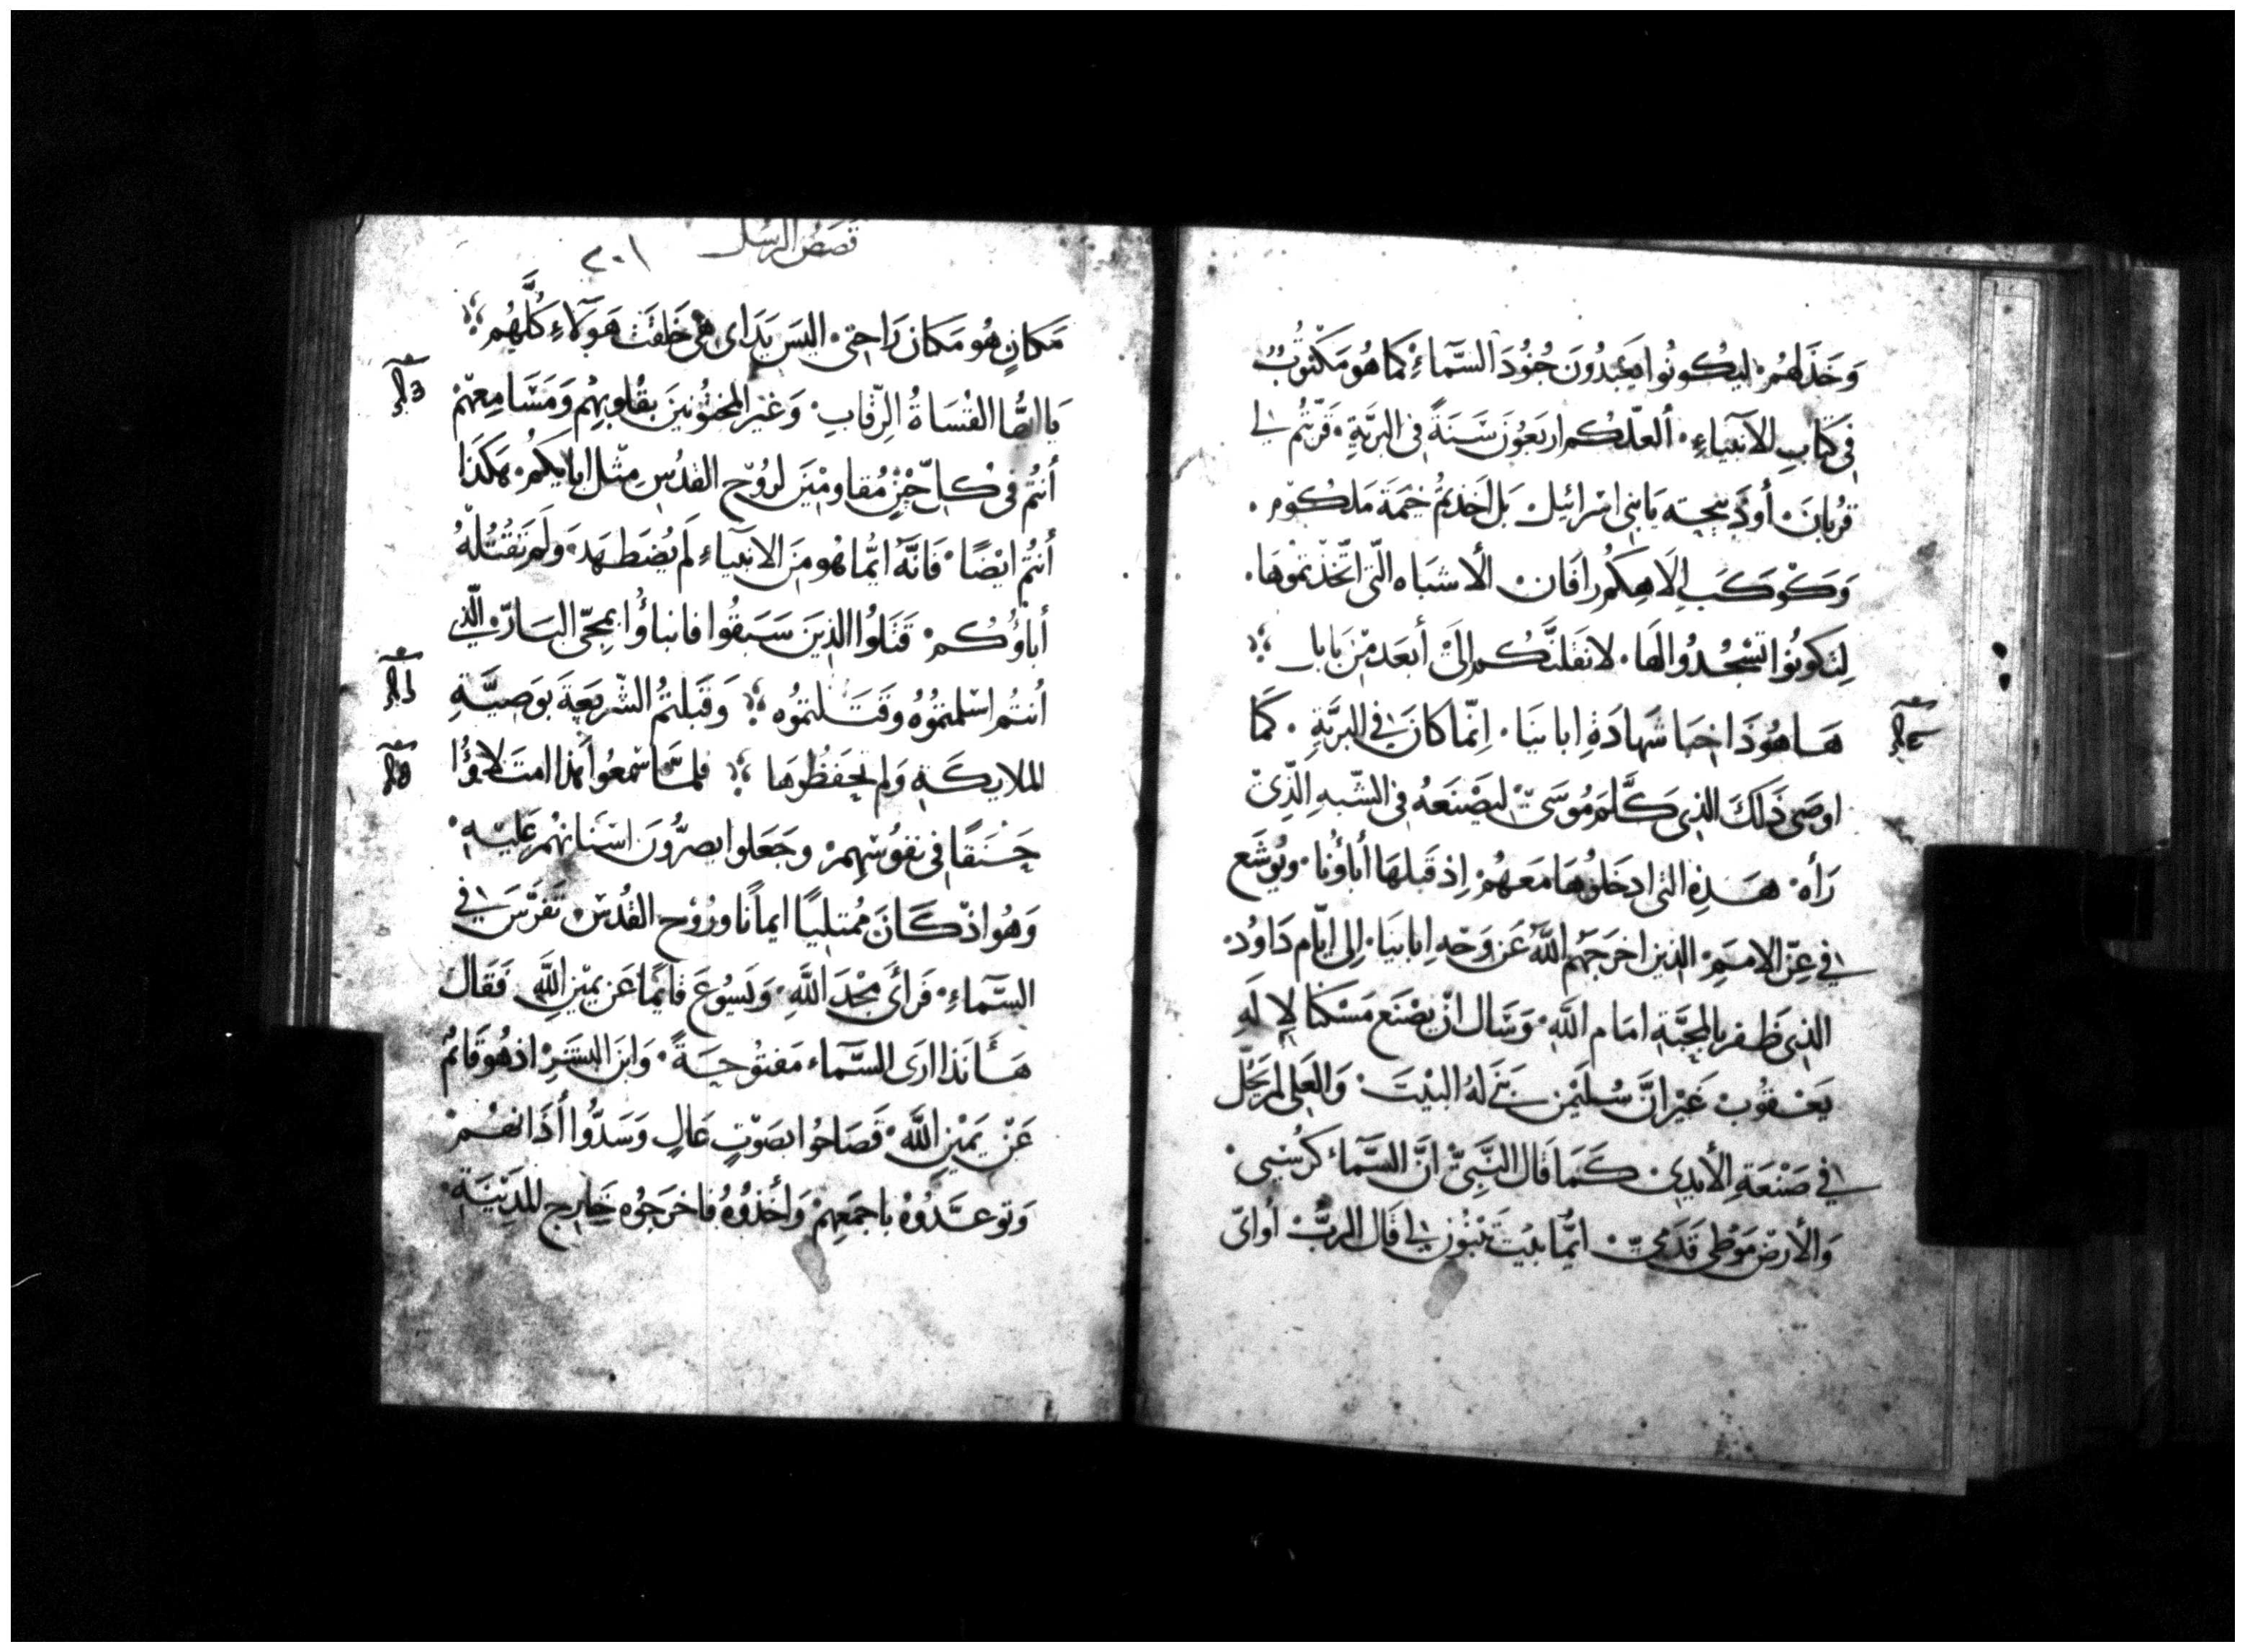 وَخَذَلهُمْ ليَكونُوا يَعبدُونَ جُنُودَ السَّمآءِ كما هُو مَكتوُبٌ
في كتابِ الانبياءِ ألعلّكم اربَعُونَ سَنَةً في البَرّيّةِ قَرّبتُم لي
قربانَ أو ذبيحته يا بني اسرائيل بَل اخذتم خيمَة مَلكوُم
وَكوكَبَ إلاهِكُم رافَانْ الأشبَاه التي اتّخذتموُهَا
لتكونُوا تسْجُدُوا لهَا لانقلنَّكم إلىَ أبعَد مِنْ بابل
هَاهُوذَا خِبَا شَهادَةِ ابائنا إنّما كانَ في البرّيَّةِ كمَا
اوصَى ذَلكَ الذي كَلَّم مُوسَى ليَصْنَعهُ في الشّبهِ الذِي
رَأهُ هَذِهِ التي ادخَلوُهَا مَعهُمْ إذ قَبلهَا أباؤُنا ويُوشَع
في عِزّ الامَمِ الذين اخرَجَهُم اللَّه عَن وَجه ابائنا إلى ايّام دَاوُد
الذي ظفر بالمحبَّة امَام اللَّهِ وَسَال انْ يصْنَع مَسْكنا لإلَهِ
يَعْقُوبْ غَيْر انَّ سُليْمن بَنَى لهُ البَيْتَ وَالعَلي لم يَحُلّ
في صَنْعَةِ الأيدي كمَا قَال النَّبِيّ انَّ السَّمآء كرُسيي
وَالأرضْ مَوْطى قَدَمَيّ ايُّما بيْت تَبْنُون لي قَال الربُّ أو ايّ
قصَصُ الرسُل ٢٠١
مَكانٍ هُو مَكان رَاحتي اليسَ يَدَاي هي خلقَت هَوَلاءِ كُلَّهُم
يَا ايُّها القُسَاةُ الرّقابِ وَغير المختُونينَ بقُلوبهِم وَمَسَامِعهِمْ
أنتُم في كلّ حيْنٍ مُقاومْينَ لروُح القدُسِ مِثل ابايكمْ هَكذَا
أنتُم ايْضًا فَانَّهُ ايُّما هُو منَ الانبياءِ لَم يُضطَهَد وَلَم تَقْتُلهُ
أباؤُكمْ قَتَلوُا الذينَ سَبَقُوا فانباؤُا بمَجيّ البَارّ الّذي
أنتُم اسْلمتمُوُه وقَتَلتموُه وَقَبلتمُ الشّريعَةَ بوَصيَّةِ
الملايكَةِ وَلم تحفَظُوهَا فلمَّا سْمعوا هَذا امتَلاؤُا
حَنَقًا في نفوُسْهِمْ وجَعَلوا يصرُّونَ اسَنانهُم عَليْهِ
وَهُو اذْ كَانَ مُمتليًا ايمانًا وروُح القُدُسْ تفرَّسَ في
السَّماءِ فرَأىَ مَجْدَ اللَّهِ وَيَسُوعَ قَايمًا عَن يميْن اللَّهِ فَقَال
هَأنَذا ارَى السَّماء مَفتوُحَةً وَابنَ البشَرِ اذ هُو قَائم
عَنْ يَميْن اللَّه فَصَاحوُا بصَوْتٍ عَالٍ وَسَدُّوا أذَانهُمْ
وَتوعَّدُوُه باجمَعِهِمْ وَأخذُوُهُ فاخرَجوُه خَارِج المَديْنَةِ